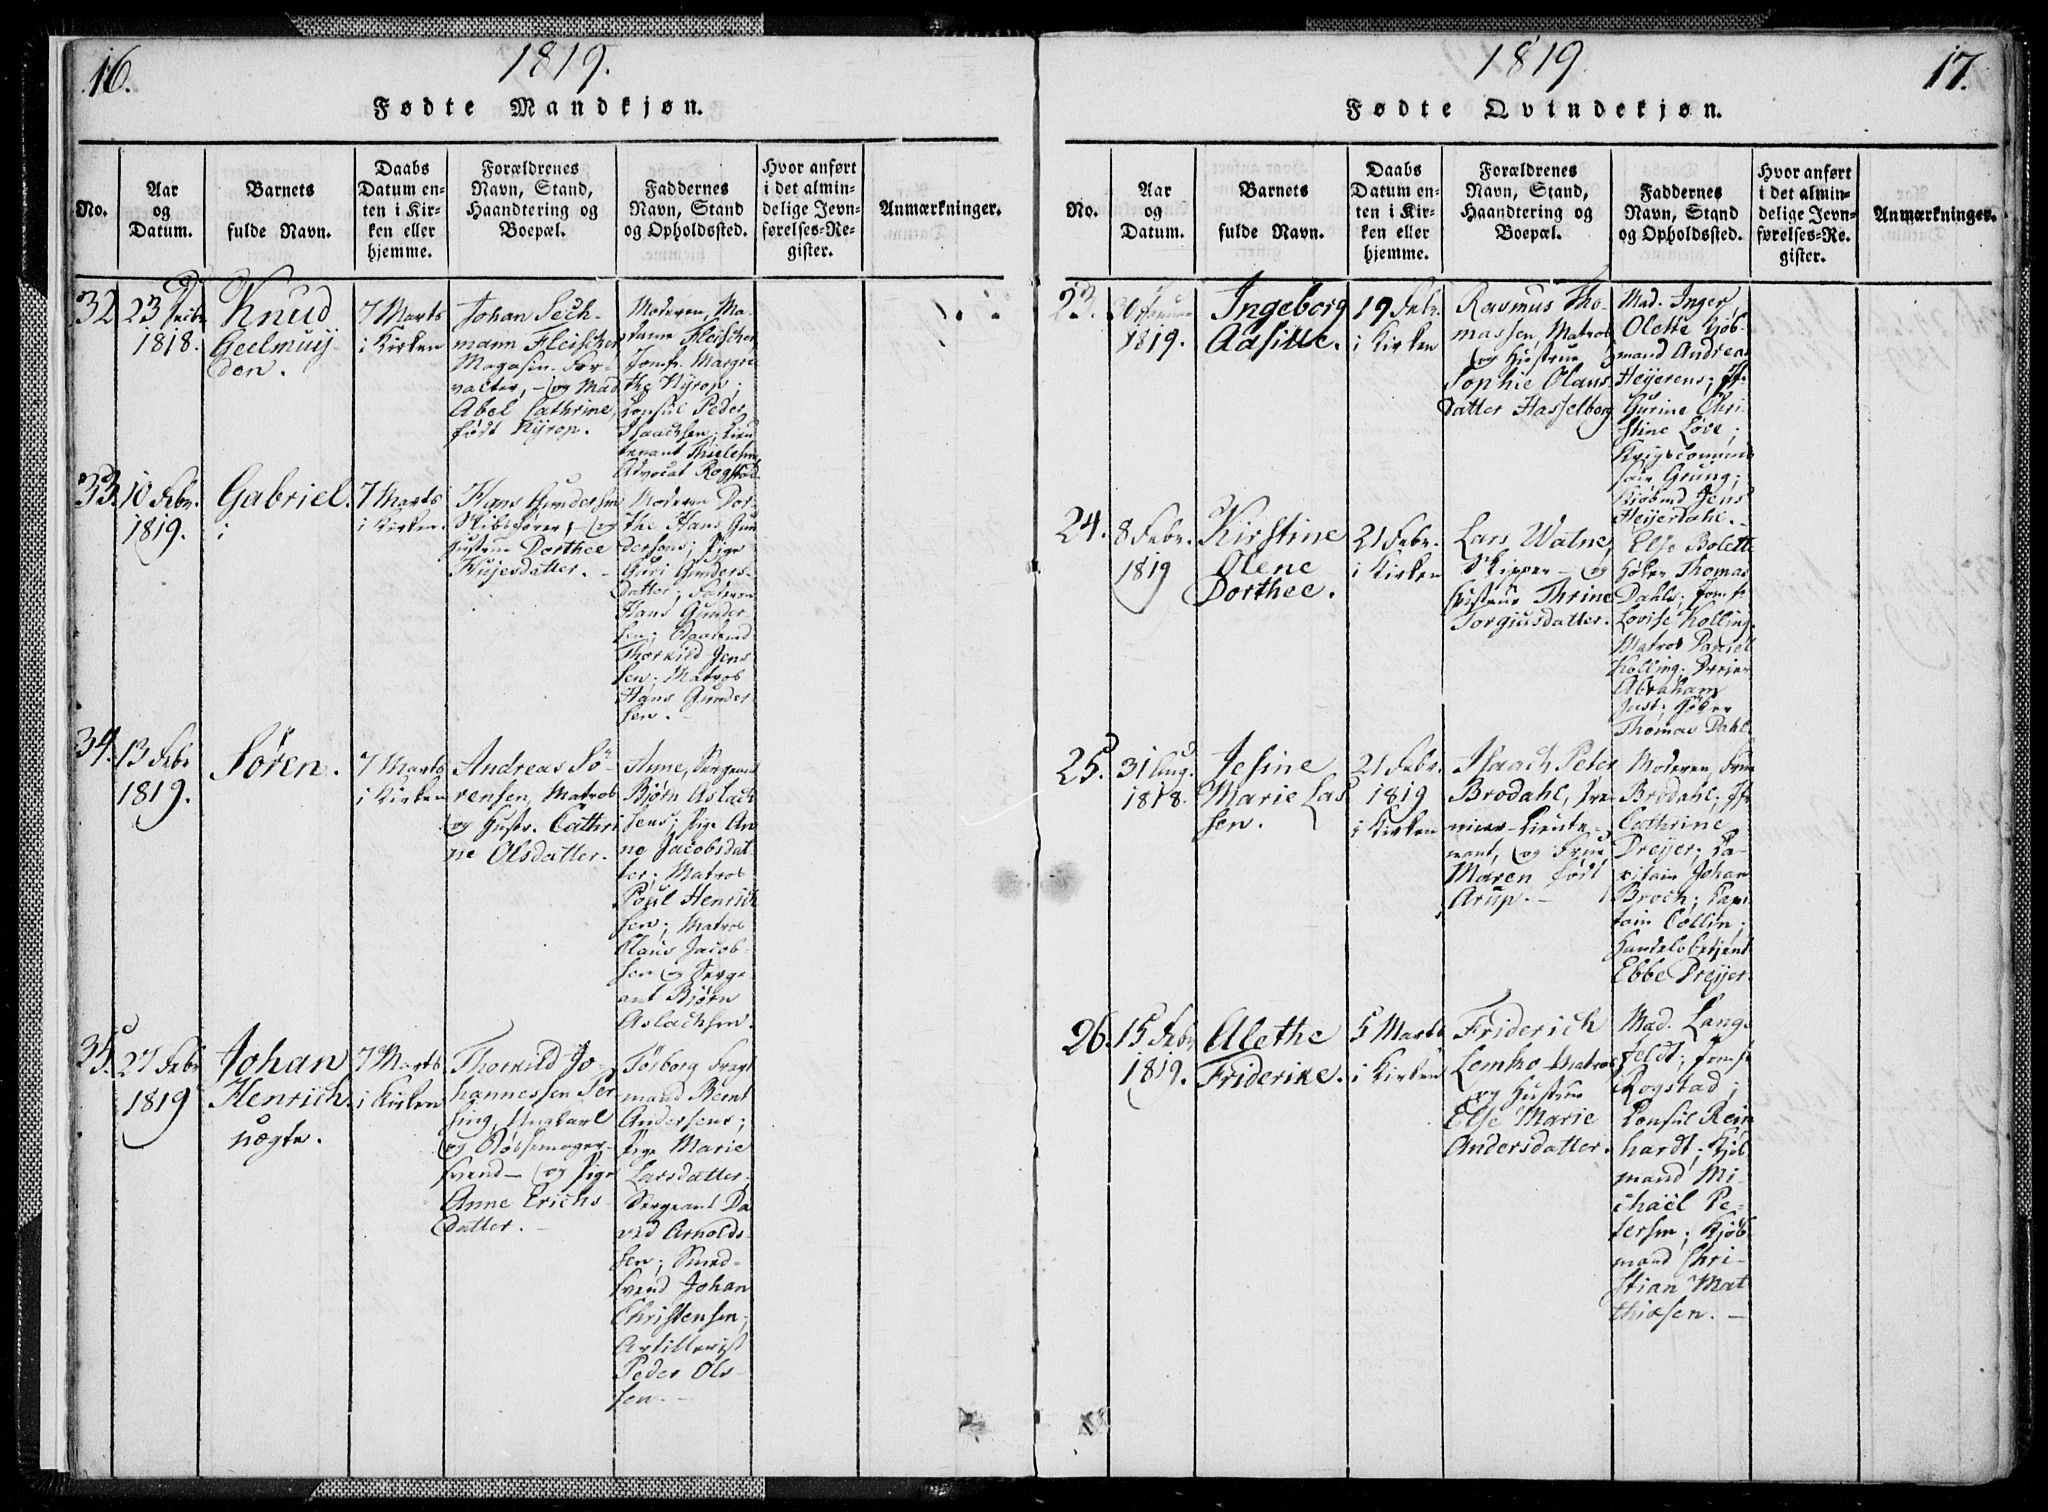 16.
1819.
Fødte Mandkjøn.
No.
Aar
og
Datum.
Barnets
fulde Navn.
Daabs
Datum en-
ten i Kir-
ken eller
hjemme.
Forældrenes
Navn, Stand,
Haandtering og
Boepæl.
Faddernes
Navn, Stand
og Opholdssted.
Hvor anført
i det almin-
delige Jevn-
førelses-Re-
gister.
Anmærkninger.
32
23
1818.
Knud
Geelmuij-
den.
7 Marts
i Kirken
Johan Sech-
mann Fleischer
Magasin-For-
valter, - og Mad.
Abel Cathrine,
født Nyrop.
Moderen, Ma-
dame Fleischer
Jomfr. Margre
the Nyrop;
Consul Peder
Isaachsen; Lieu
tenant Thielesen
Advocat Rogstad
33.
10 Febr.
1819.
Gabriel.
7 Marts
i Kirken.
Hans Gundersen
Skibsfører, - og
Hustrue Dorthee
Moderen Dor-
the Hans Gun
dersens; Pige
Guri Gunders-
datter; Faderen
Hans Gunder
sen;
Thorkild Jens
sen; Matros
Hans Gunder
sen. -
34.
13 Febr
1819.
Søren.
7 Marts
i Kirken
Andreas Sö-
rensen, Matros
og Hustr. Cathri
ne Olsdatter.
Anne, Sergeant
Bjørn Aslach
sens; Pige An
ne Jacobsdat-
ter; Matros
Poul Henrich
sen; Matros
Claus Jacob-
sen og Serge
ant Bjørn
Aslachsen.
35.
27 Febr
1819
Johan
Henrich.
uægte.
7 Marts
i Kirken
Thorkild Jo-
hannessen Ter
sing, Ungkarl
og Rebsemager-
svend - og Pige
Anne Erichs
datter. -
Torborg
mand Bernt
Andersens;
Pige Marie
Larsdatter;
Sergeant Da
vid Arnolds-
sen; Smed-
svend Johan
Christensen;
Artillerist
Peder Ols-
sen. -
1819
17.
Fødte Qvindekjøn.
No.
Aar
og
Datum.
Barnets
fulde Navn.
Daabs
Datum en-
ten i Kir-
ken eller
hjemme.
Forældrenes
Navn, Stand,
Haandtering og
Boepæl.
Faddernes
Navn, Stand
og Opholdssted.
Hvor anført
i det almin-
delige Jevn-
førelses-Re-
gister.
Anmærkninger.
23.
1819.
Ingeborg
19 Febr.
i Kirken
Rasmus Tho-
massen, Matros
og Hustrue
Sophie Olaus
datter Hasselborg
Mad. Inger
Olette Kjöb-
mand Andreas
Heyerens; Jfr
Gurine Chri-
stine Løve;
Krigscommis
sair Grung;
Kjöbmd Jens
Heyerdahl. -
24.
8 Febr.
1819
Kirstine
Olene
Dorthee.
21 Febr.
i Kirken
Lars Watne,
Skipper - og
Hustrue Thrine
Torgiusdatter.
Else Bolette
Høker Thomas
Dahls; Jomfr
Lovise Kolling
Matros Daniel
Kolling; Dreier
Abraham
Just; Høker
Thomas Dahl.
25.
31 Aug.
1818.
Jesine
Marie Las
sen.
21 Febr.
1819
i Kirken
Isaach Peter
Brodahl, Pre-
mier-Lieute-
nant, og Frue
Maren født
Arup. -
Moderen, Frue
Brodahl; Jfr
Cathrine
Dreyer; Ca-
pitain Johan
Broch; Capi
tain Collin;
Handelsbetjent
Ebbe Dreyer.
26.
15 Febr
1819.
Alethe
Friderike.
5 Marts
i Kirken
Friderich
Lemko Matros
og Hustrue
Else Marie
Andersdatter.
Mad. Lang-
feldt; Jomfr
Rogstad;
Consul Rein
hardt; Kjöb
mand Mi-
chaël Pe-
tersen; Kjöb
mand Chri-
stian Mat
thiesen. -